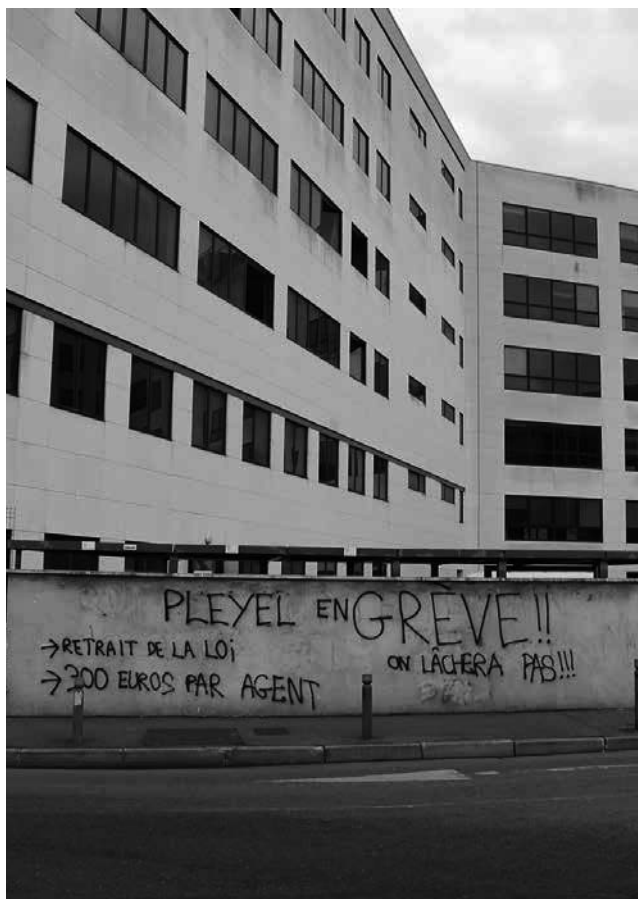 PLEYEL EN GRÈVE!!
→ RETRAIT DE LA LOi
→ 300 EUROS PAR AGENT
ON LÂCHERA PAS!!!